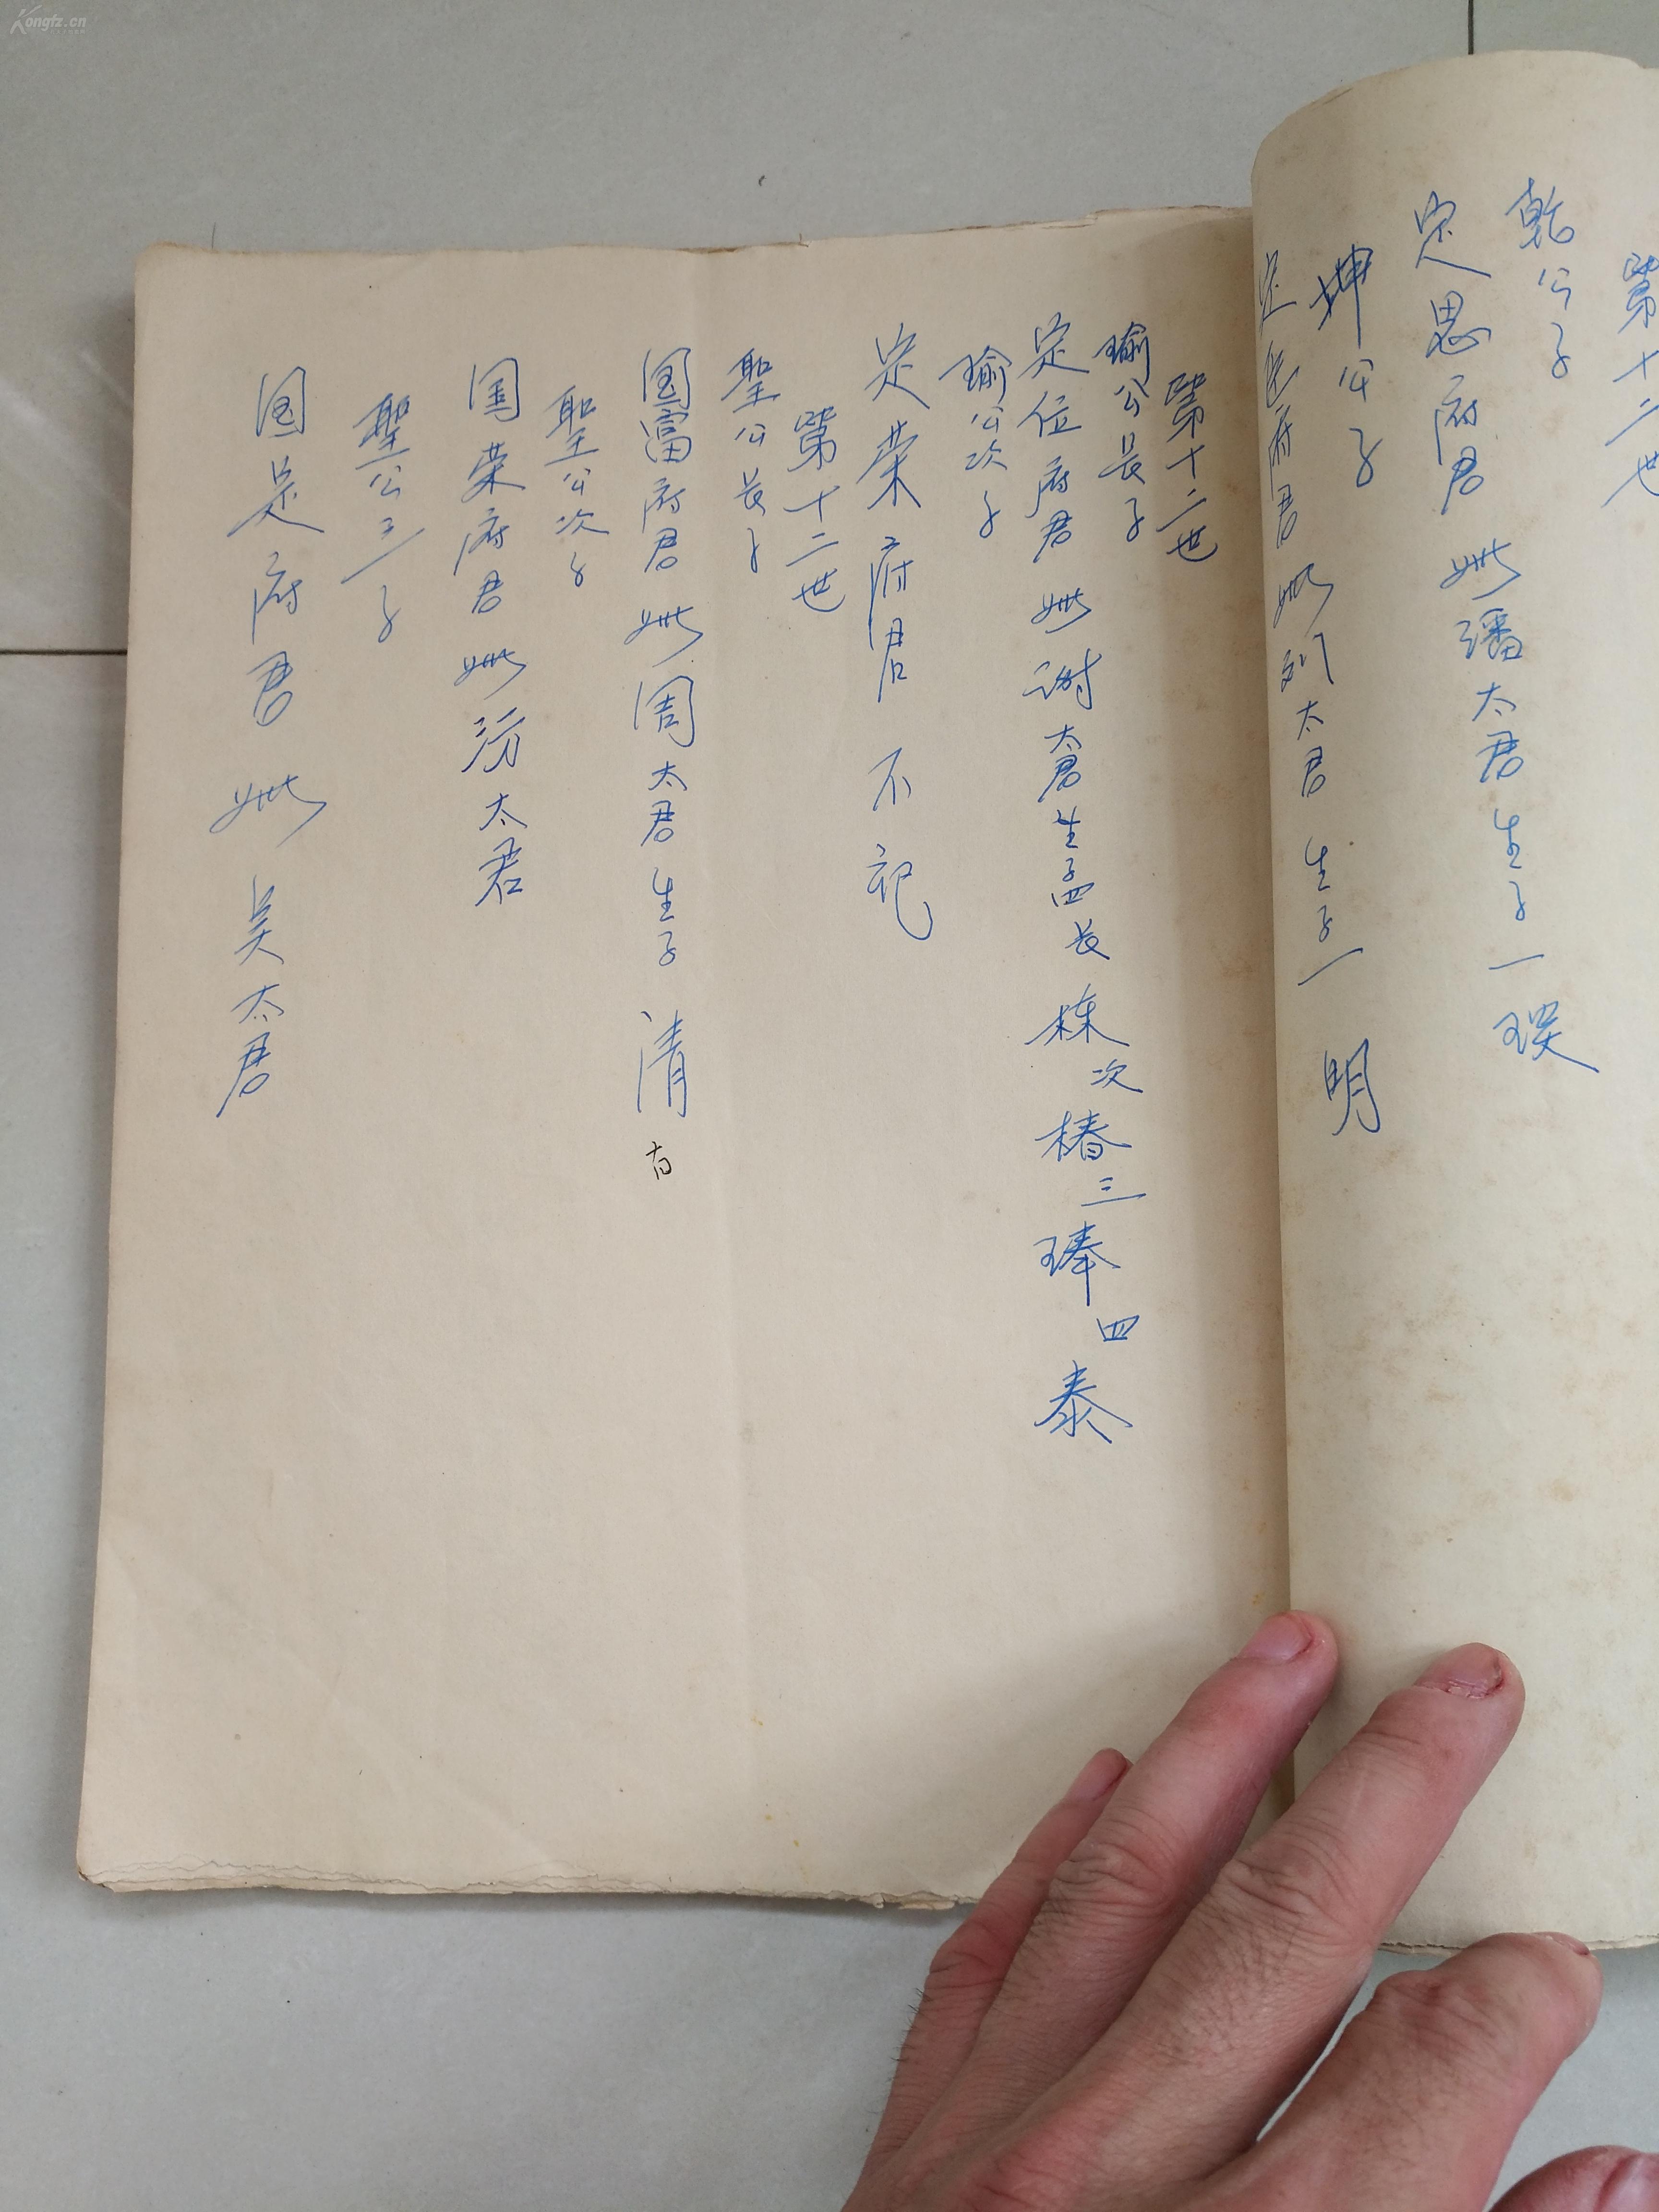 第十二世
乾公子
定思府君 妣潘太君 生子一 瑛
坤公子
定 府君 妣刘太君 生子一 明
第十二世
瑜公长子
定位府君 妣谢太君 生子四 长 栋 次 椿 三 琫 四 泰
瑜公次子
定荣府君 不记
第十二世
聖公长子
国富府君 妣周太君 生子 清
聖公次子
国荣府君 妣 太君
聖公三子
国定府君 妣 吴太君
Kongfz.cn